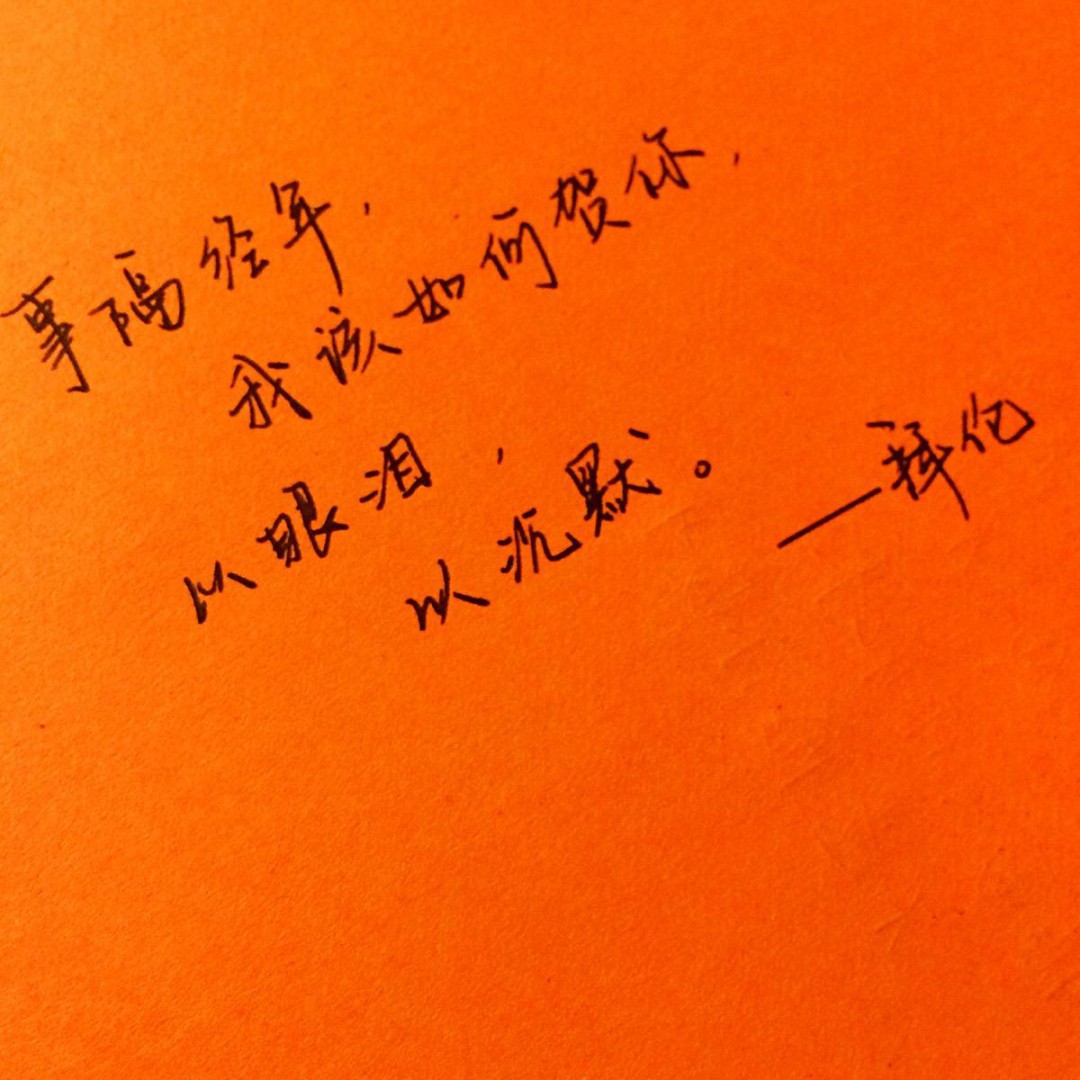 事隔经年,
我该如何贺你,
以眼泪,
以沉默。 ——拜伦